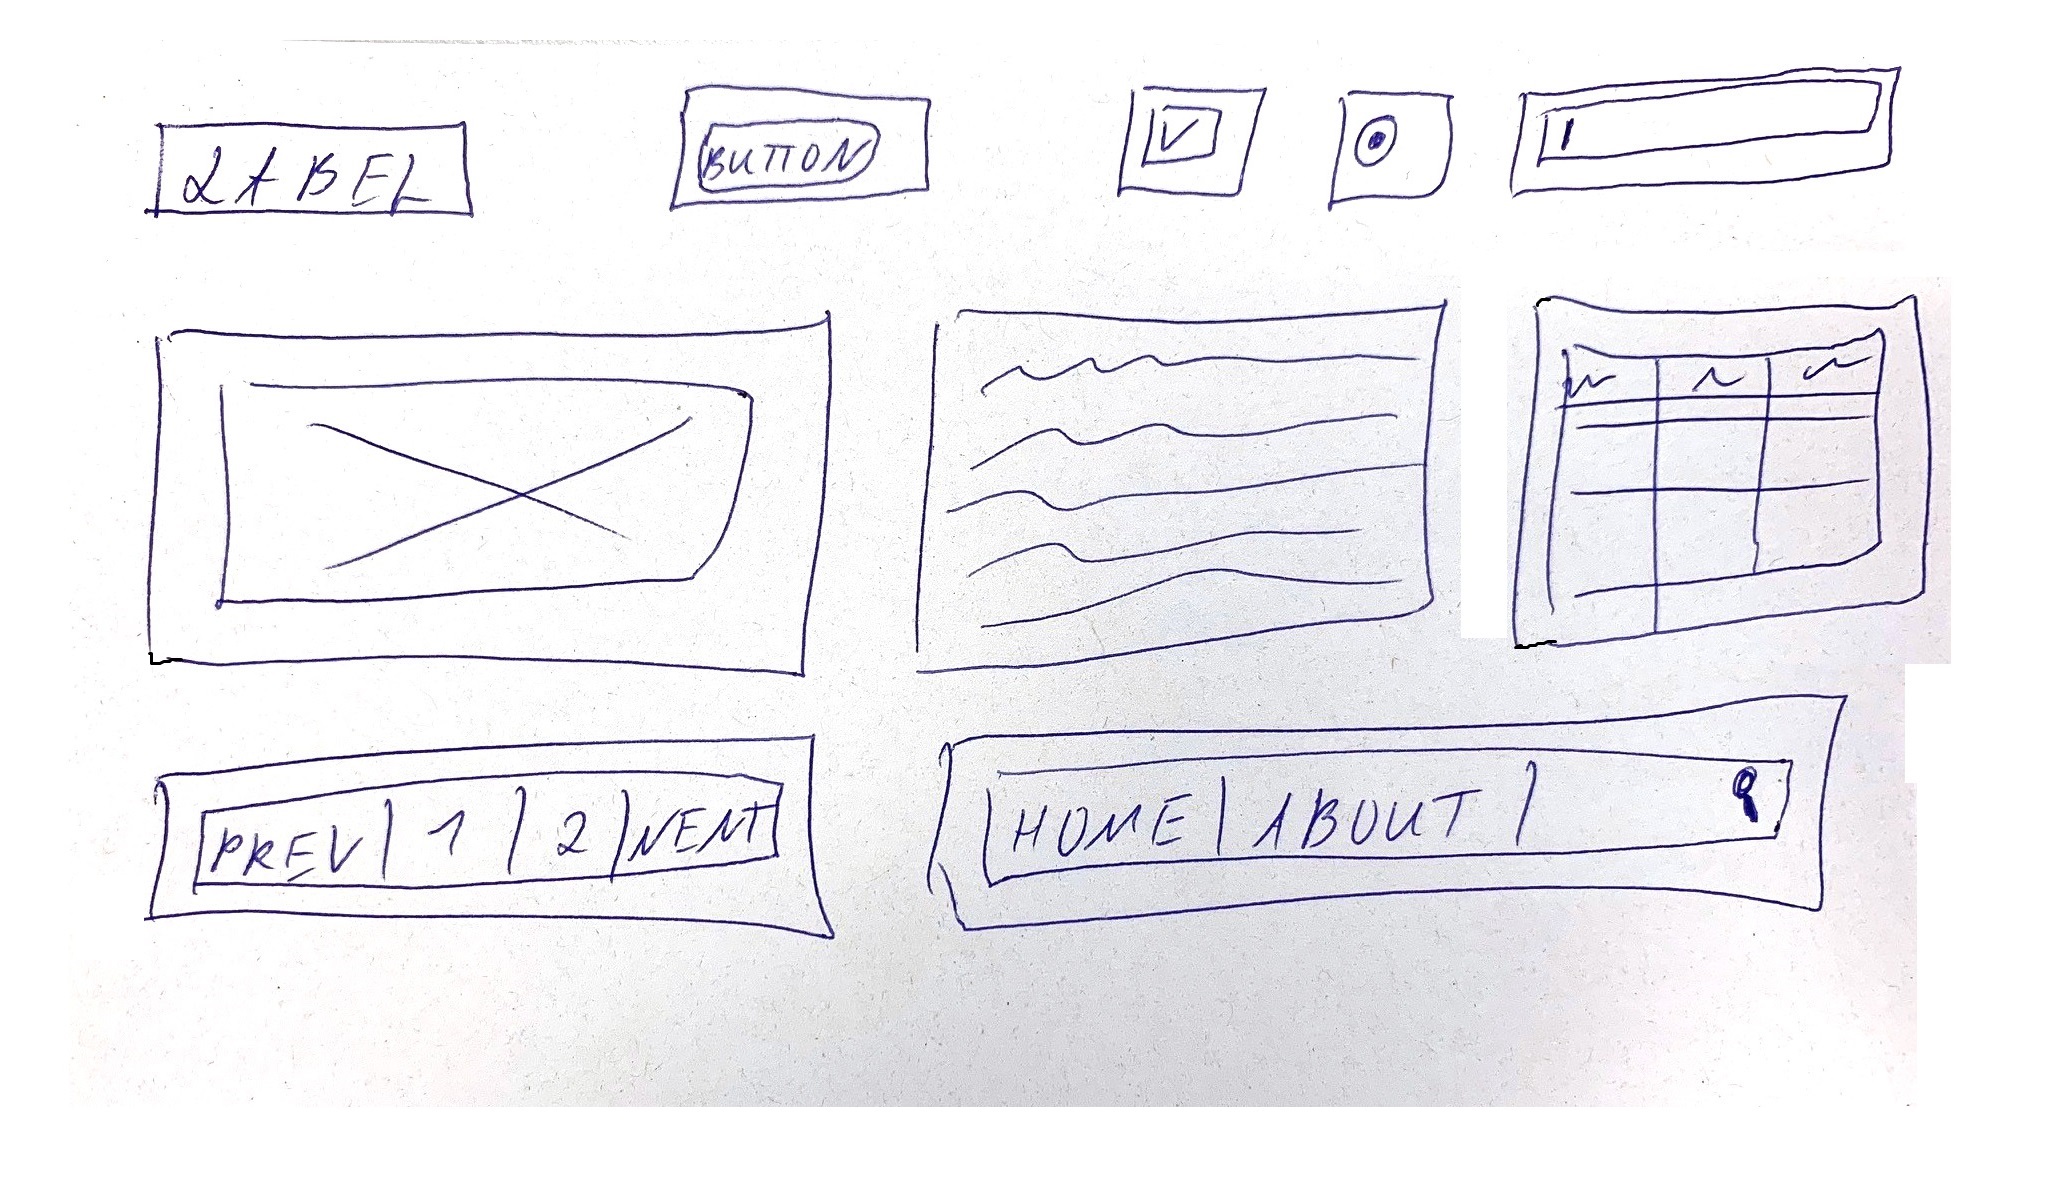 LABEL
BUTTON
PREV 1 2 NEXT
HOME ABOUT